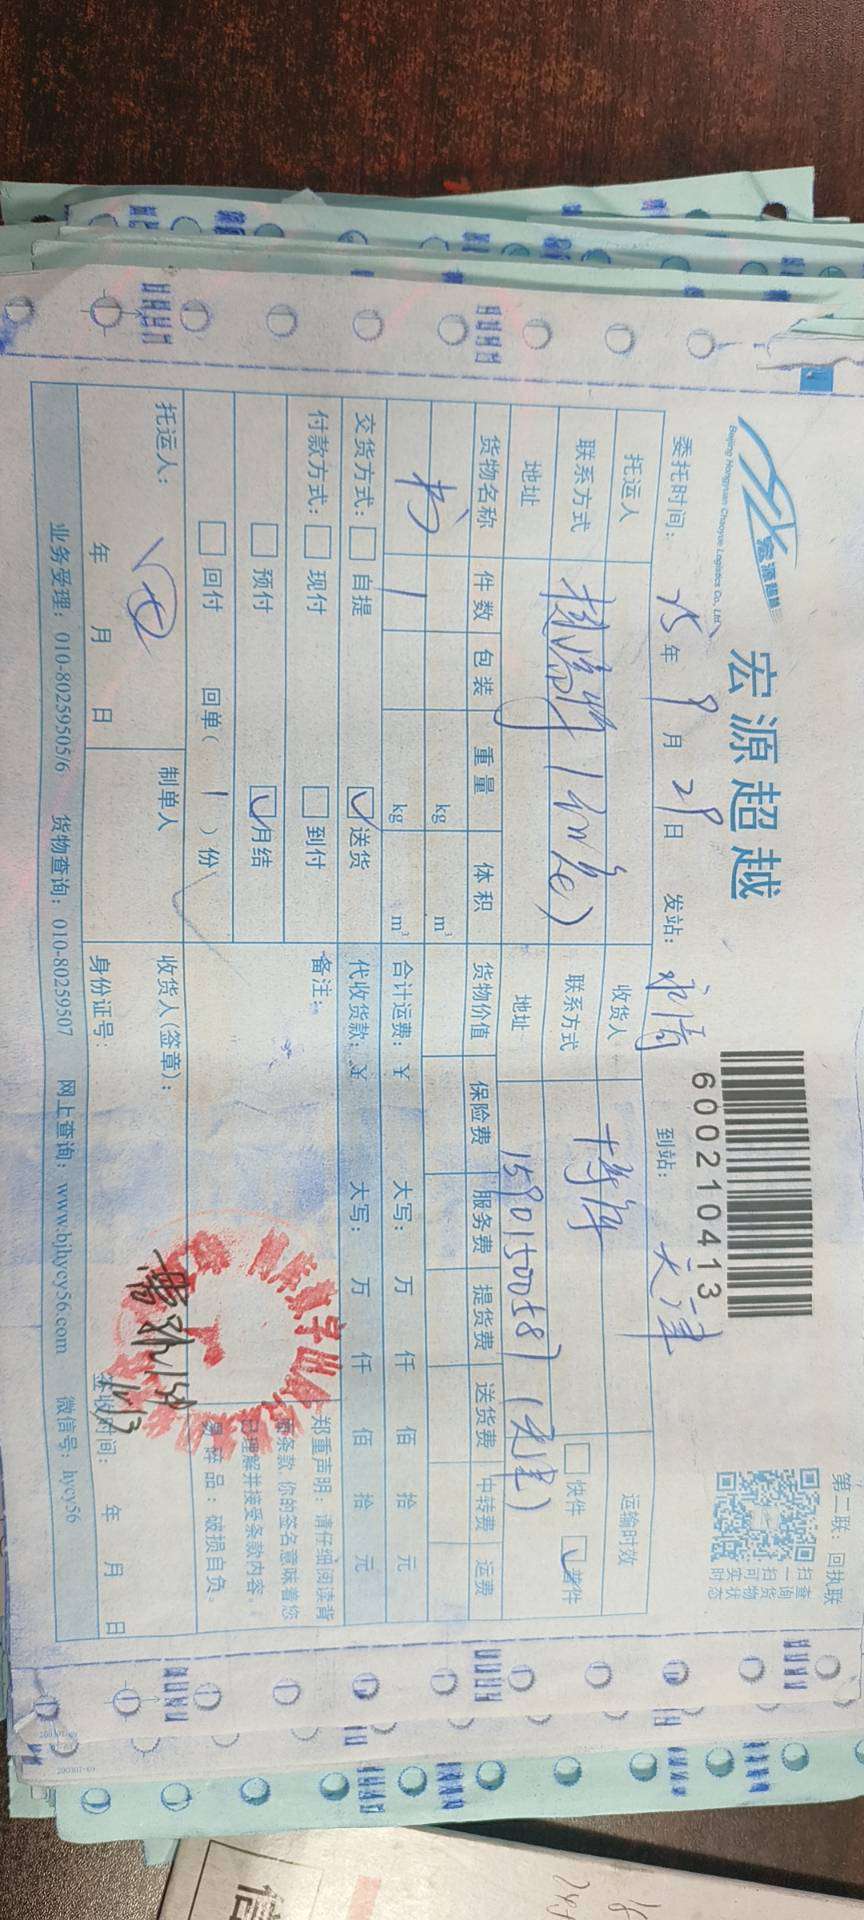 第二联：回执联
扫一扫可实时
查询货物状态
宏源超越
Beijing Hongyuan Chaoyue Logistics Co., Ltd.
宏源超越
600210413
委托时间： 25 年 9 月 29 日 发站： 到站： 天津
托运人 收货人 运输时效
联系方式 联系方式 快件 普件
地址 地址 15901500587 (天津)
货物名称 件数 包装 重量 体积 货物价值 保险费 服务费 提货费 送货费 中转费 运费
kg m³
书 1 kg m³ 合计运费：¥ 大写： 万 仟 佰 拾 元
交货方式： 自提 送货 代收货款：¥ 大写： 万 仟 佰 拾 元
付款方式： 现付 到付 备注：
预付 月结
回付 回单（ 1 ）份
郑重声明：请仔细阅读背
面条款,你的签名意味着您
已理解并接受条款内容。
易碎品：破损自负。
托运人： 制单人 收货人(签章)：
年 月 日 身份证号： 签收时间： 年 月 日
业务受理：010-80259505/6 货物查询：010-80259507 网上查询：www.bjhycy56.com 微信号：hycy56